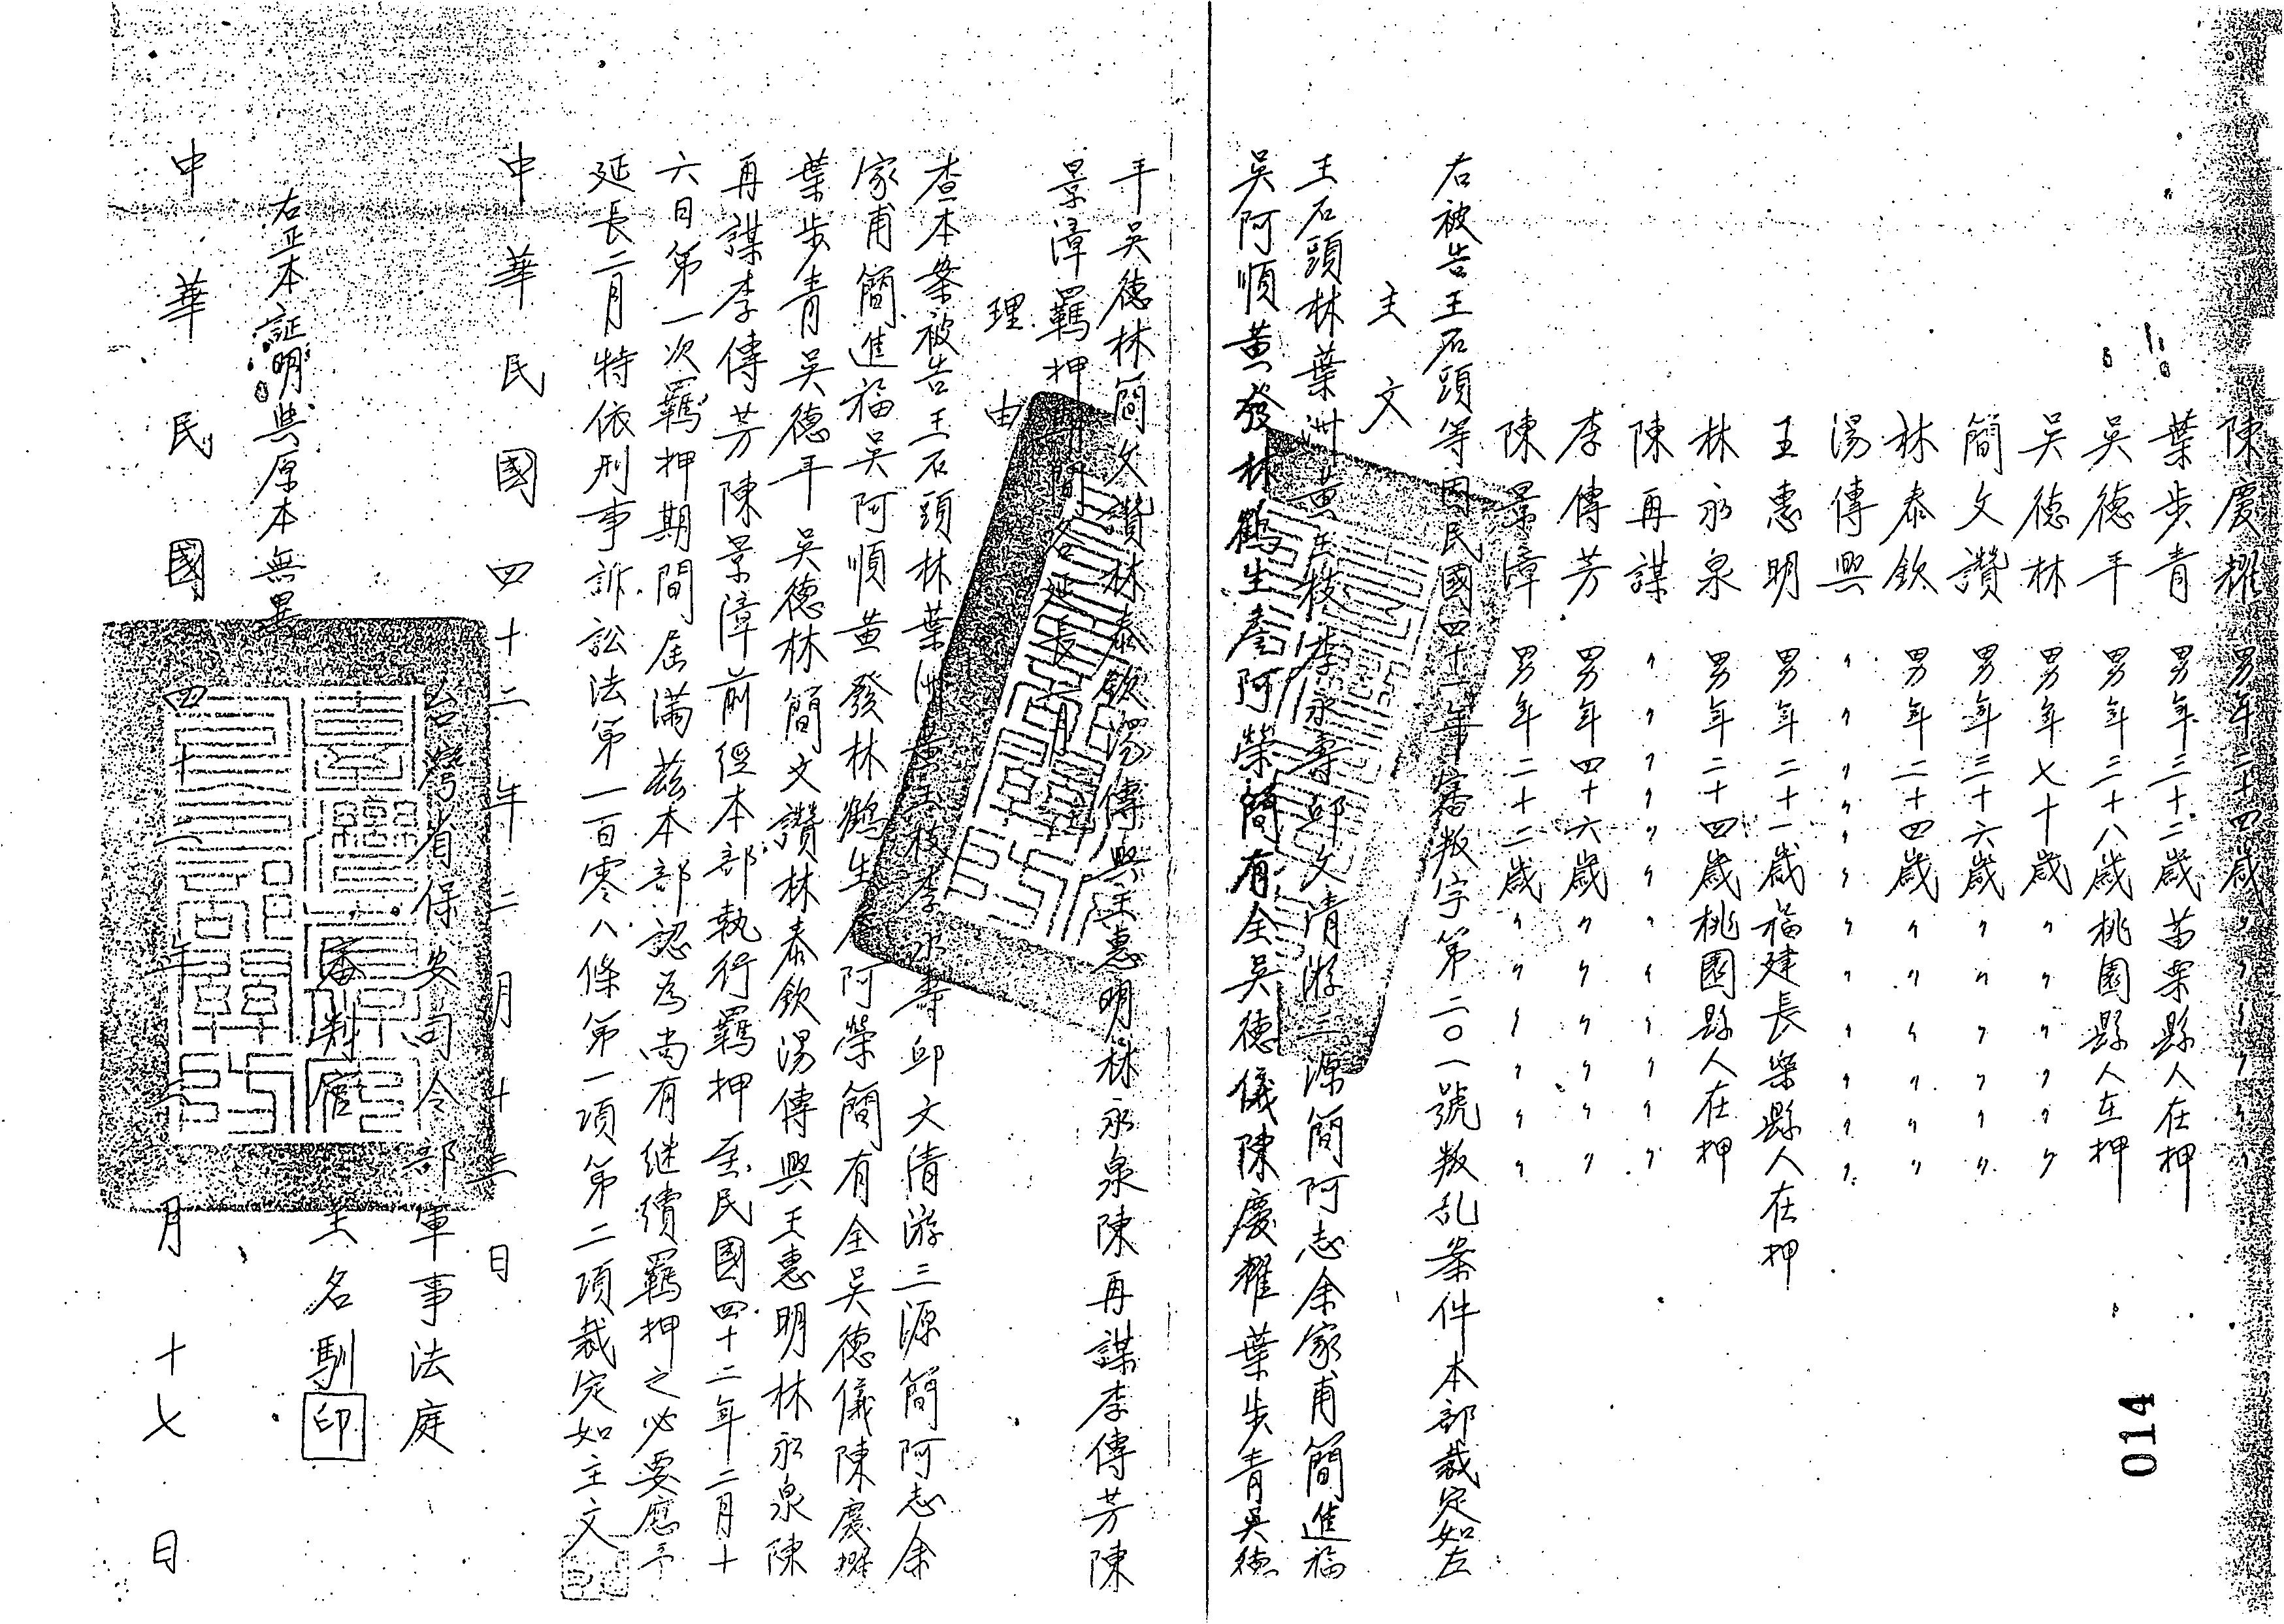 陳慶耀 男年二十四歲〃〃〃〃〃〃
葉步青 男年三十二歲苗栗縣人在押
吳德平 男年三十八歲桃園縣人在押
吳德林 男年七十歲〃〃〃〃〃
簡文讚 男年三十六歲〃〃〃〃〃
林泰欽 男年二十四歲〃〃〃〃〃
湯傳興 〃〃〃〃〃〃〃〃〃〃
王惠明 男年二十一歲福建長樂縣人在押
林永泉 男年二十四歲桃園縣人在押
陳再謀 〃〃〃〃〃〃〃〃〃〃
李傳芳 男年四十六歲〃〃〃〃〃
陳景漳 男年二十二歲〃〃〃〃〃
右被告王石頭等因民國四十一年審叛字第二〇一號叛乱案件本部裁定如左
主文
王石頭林葉洲黃玉枝李永壽邱文清游三源簡阿志余家甫簡進福
吳阿順黃發林鶴生詹阿榮簡有全吳德儀陳慶耀葉步青吳德
平吳德林簡文讚林泰欽湯傳興王惠明林永泉陳再謀李傳芳陳
景漳羈押期間各延長貳月
理由
查本案被告王石頭林葉洲黃玉枝李永壽邱文清游三源簡阿志余
家甫簡進福吳阿順黃發林鶴生詹阿榮簡有全吳德儀陳慶耀
葉步青吳德平吳德林簡文讚林泰欽湯傳興王惠明林永泉陳
再謀李傳芳陳景漳前經本部執行羈押至民國四十二年二月十
六日第一次羈押期間屆滿茲本部認為尚有继續羈押之必要應予
延長二月特依刑事訴訟法第一百零八條第一項第二項裁定如主文
中華民國四十二年二月十三日
台灣省保安司令部軍事法庭
審判官 王名馴 印
右正本証明與原本無異
中華民國四十二年二月十七日
014